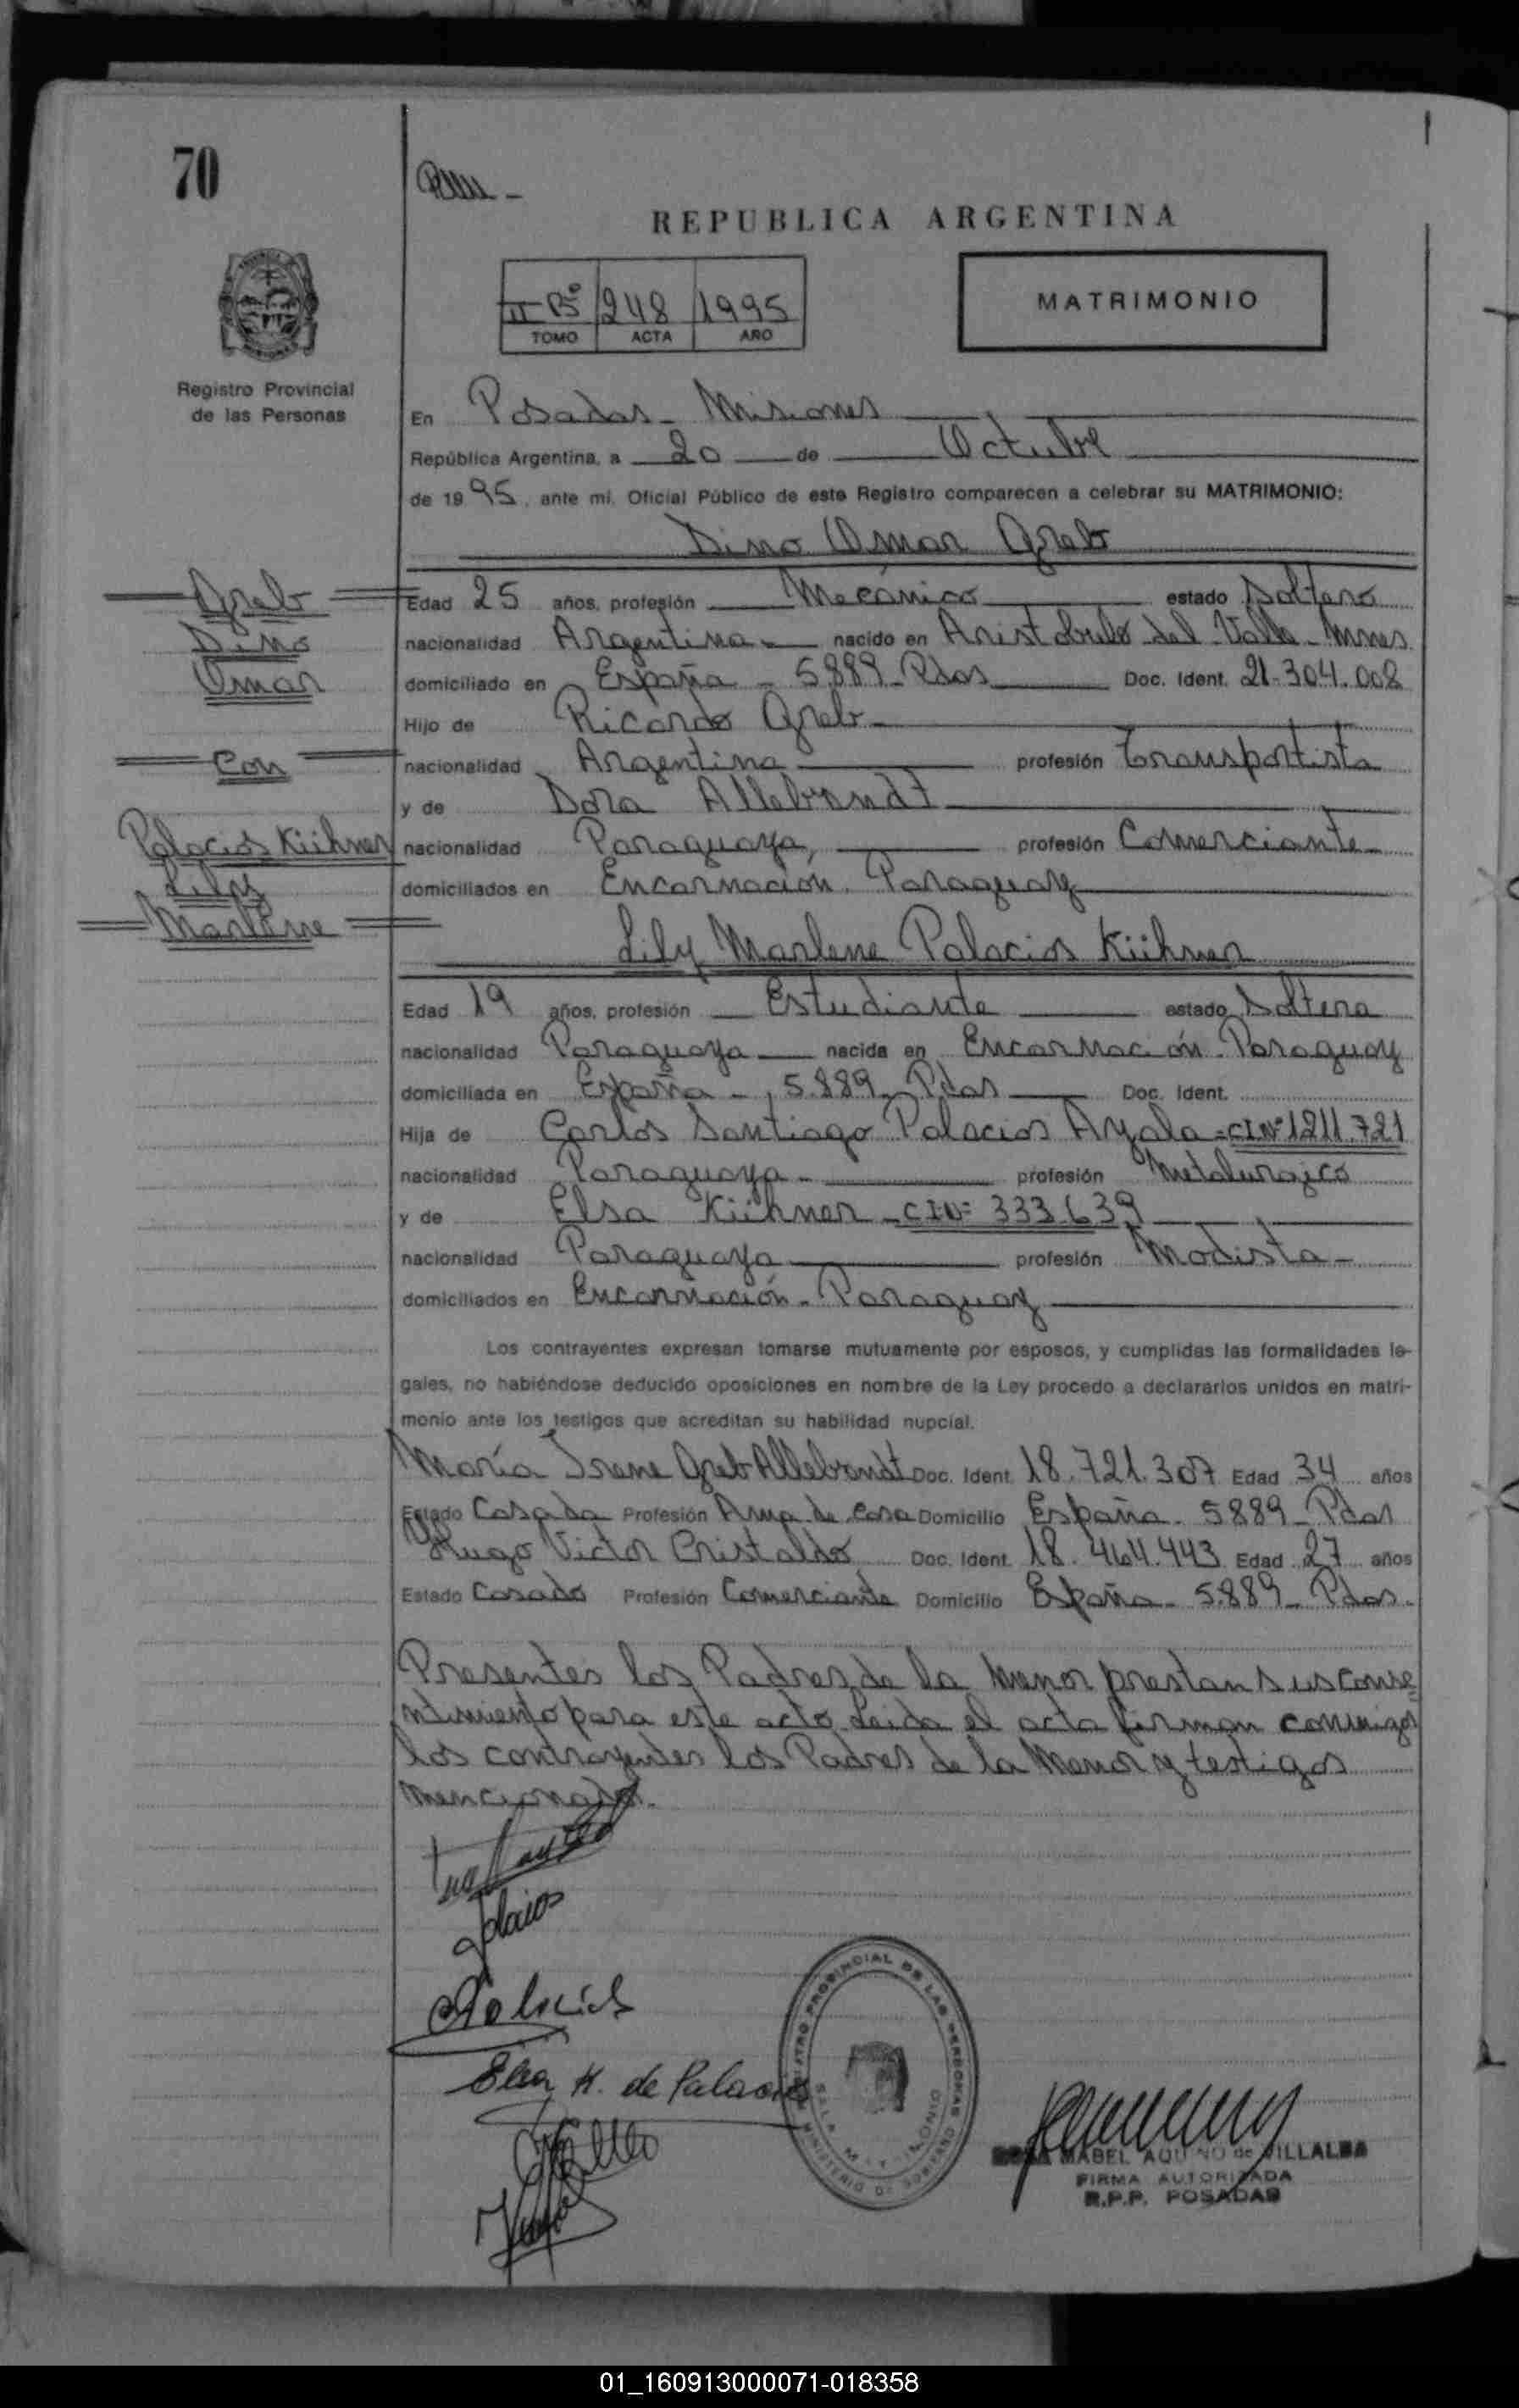 70
REPUBLICA ARGENTINA
II Bº 248 1995
TOMO ACTA AÑO
MATRIMONIO
Registro Provincial
de las Personas
En Posadas - Misiones
República Argentina, a 20 de Octubre
de 1995, ante mi, Oficial Público de este Registro comparecen a celebrar su MATRIMONIO:
Dino Omar Greb
Greb
Dino
Omar
Con
Palacios Kühner
Lily
Marlene
Edad 25 años, profesión Mecánico estado Soltero
nacionalidad Argentina - nacido en Aristobulo del Valle - Mnes
domiciliado en España - 5889 - Pdas Doc. Ident. 21.304.008
Hijo de Ricardo Greb -
nacionalidad Argentina profesión Transportista
y de Dora Allebrandt
nacionalidad Paraguaya, profesión Comerciante
domiciliados en Encarnación. Paraguay
Lily Marlene Palacios Kühner
Edad 19 años, profesión Estudiante estado Soltera
nacionalidad Paraguaya nacida en Encarnación. Paraguay
domiciliada en España - 5.889 - Pdas Doc. Ident.
Hija de Carlos Santiago Palacios Ayala = CI Nº 1211.721
nacionalidad Paraguaya - profesión Metalurgico
y de Elsa Kühner - CI Nº 333.639
nacionalidad Paraguaya profesión Modista -
domiciliados en Encarnación - Paraguay
Los contrayentes expresan tomarse mutuamente por esposos, y cumplidas las formalidades le-
gales, no habiéndose deducido oposiciones en nombre de la Ley procedo a declararlos unidos en matri-
monio ante los testigos que acreditan su habilidad nupcial.
María Irene Greb Allebrandt Doc. Ident. 18.721.307 Edad 34 años
Estado Casada Profesión Ama de casa Domicilio España - 5889 - Pdas
Hugo Victor Cristaldo Doc. Ident. 18.464.443 Edad 27 años
Estado Casado Profesión Comerciante Domicilio España - 5.889 - Pdas.
Presentes los Padres de la Menor prestan sus conse
ntimiento para este acto Leida el acta firman conmigo
los contrayentes los Padres de la Menor y testigos
mencionados.
Palacios
Elsa K. de Palacios
REGISTRO PROVINCIAL DE LAS PERSONAS
SALA MATRIMONIO
MINISTERIO DE GOBIERNO
ROSA MABEL AQUINO de VILLALBA
FIRMA AUTORIZADA
R.P.P. POSADAS
01_160913000071-018358